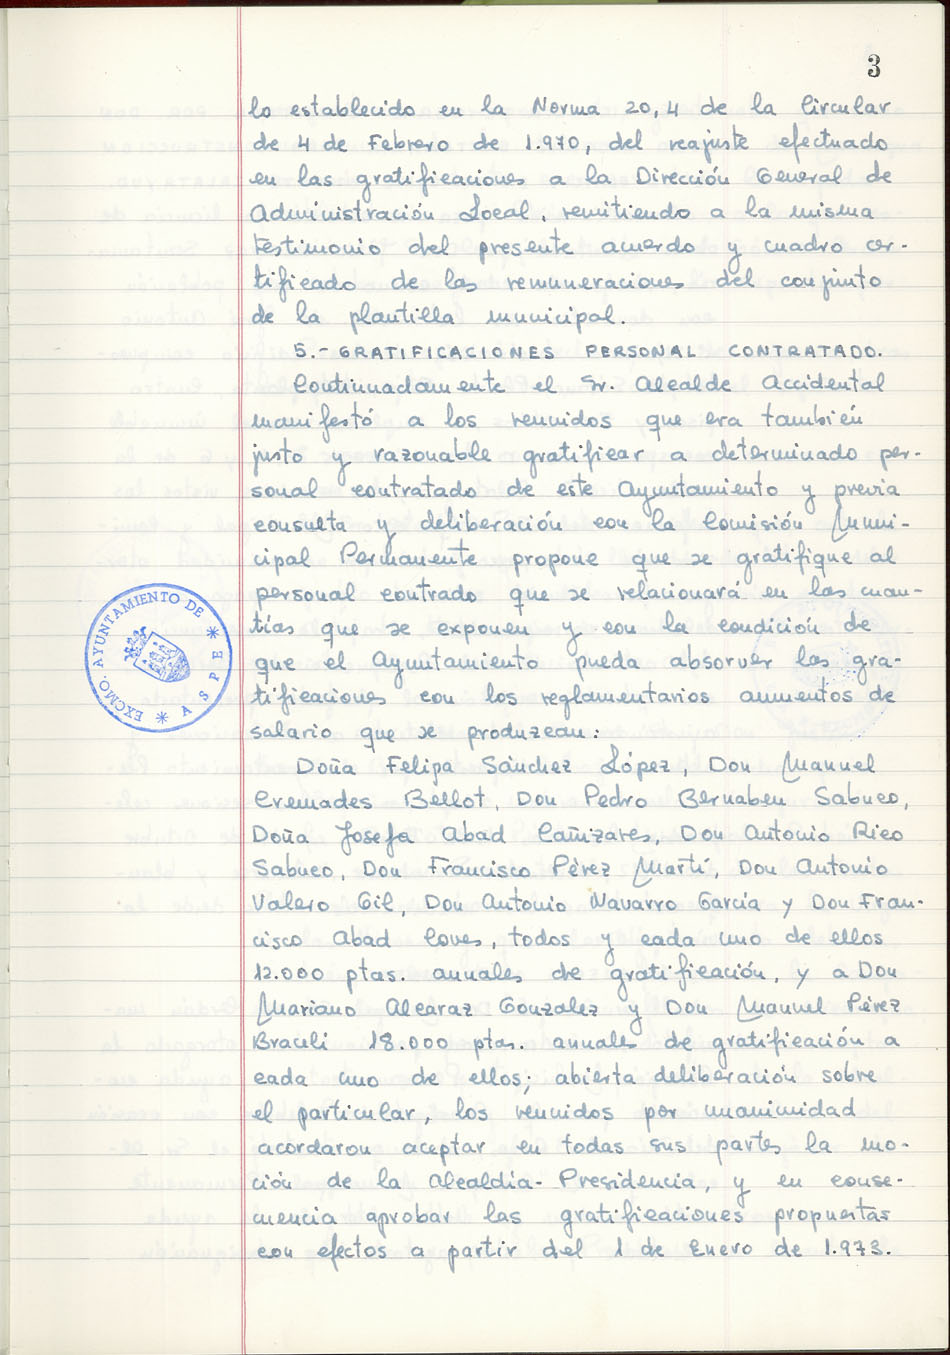 3
lo establecido en la Norma 20,4 de la Circular
de 4 de Febrero de 1.970, del reajuste efectuado
en las gratificaciones a la Dirección General de
Administración Local, remitiendo a la misma
testimonio del presente acuerdo y cuadro cer-
tificado de las remuneraciones del conjunto
de la plantilla municipal.
5.- GRATIFICACIONES PERSONAL CONTRATADO.
Continuadamente el Sr. Alcalde Accidental
manifestó a los reunidos que era también
justo y razonable gratificar a determinado per-
sonal contratado de este Ayuntamiento y previa
consulta y deliberación con la Comisión Muni-
cipal Permanente propone que se gratifique al
personal contrado que se relacionará en las cuan-
tías que se exponen y con la condición de
que el Ayuntamiento pueda absorver las gra-
tificaciones con los reglamentarios aumentos de
salario que se produzcan:
Doña Felipa Sánchez López, Don Manuel
Cremades Bellot, Don Pedro Bernabeu Sabuco,
Doña Josefa Abad Cañizares, Don Antonio Rico
Sabuco, Don Francisco Pérez Martí, Don Antonio
Valero Gil, Don Antonio Navarro García y Don Fran-
cisco Abad Coves, todos y cada uno de ellos
12.000 ptas. anuales de gratificación, y a Don
Mariano Alcaraz Gonzalez y Don Manuel Pérez
Braceli 18.000 ptas. anuales de gratificación a
cada uno de ellos; abierta deliberación sobre
el particular, los reunidos por unanimidad
acordaron aceptar en todas sus partes la mo-
ción de la Alcaldía-Presidencia, y en conse-
cuencia aprobar las gratificaciones propuestas
con efectos a partir del 1 de Enero de 1.973.
EXCMO. AYUNTAMIENTO DE * ASPE *